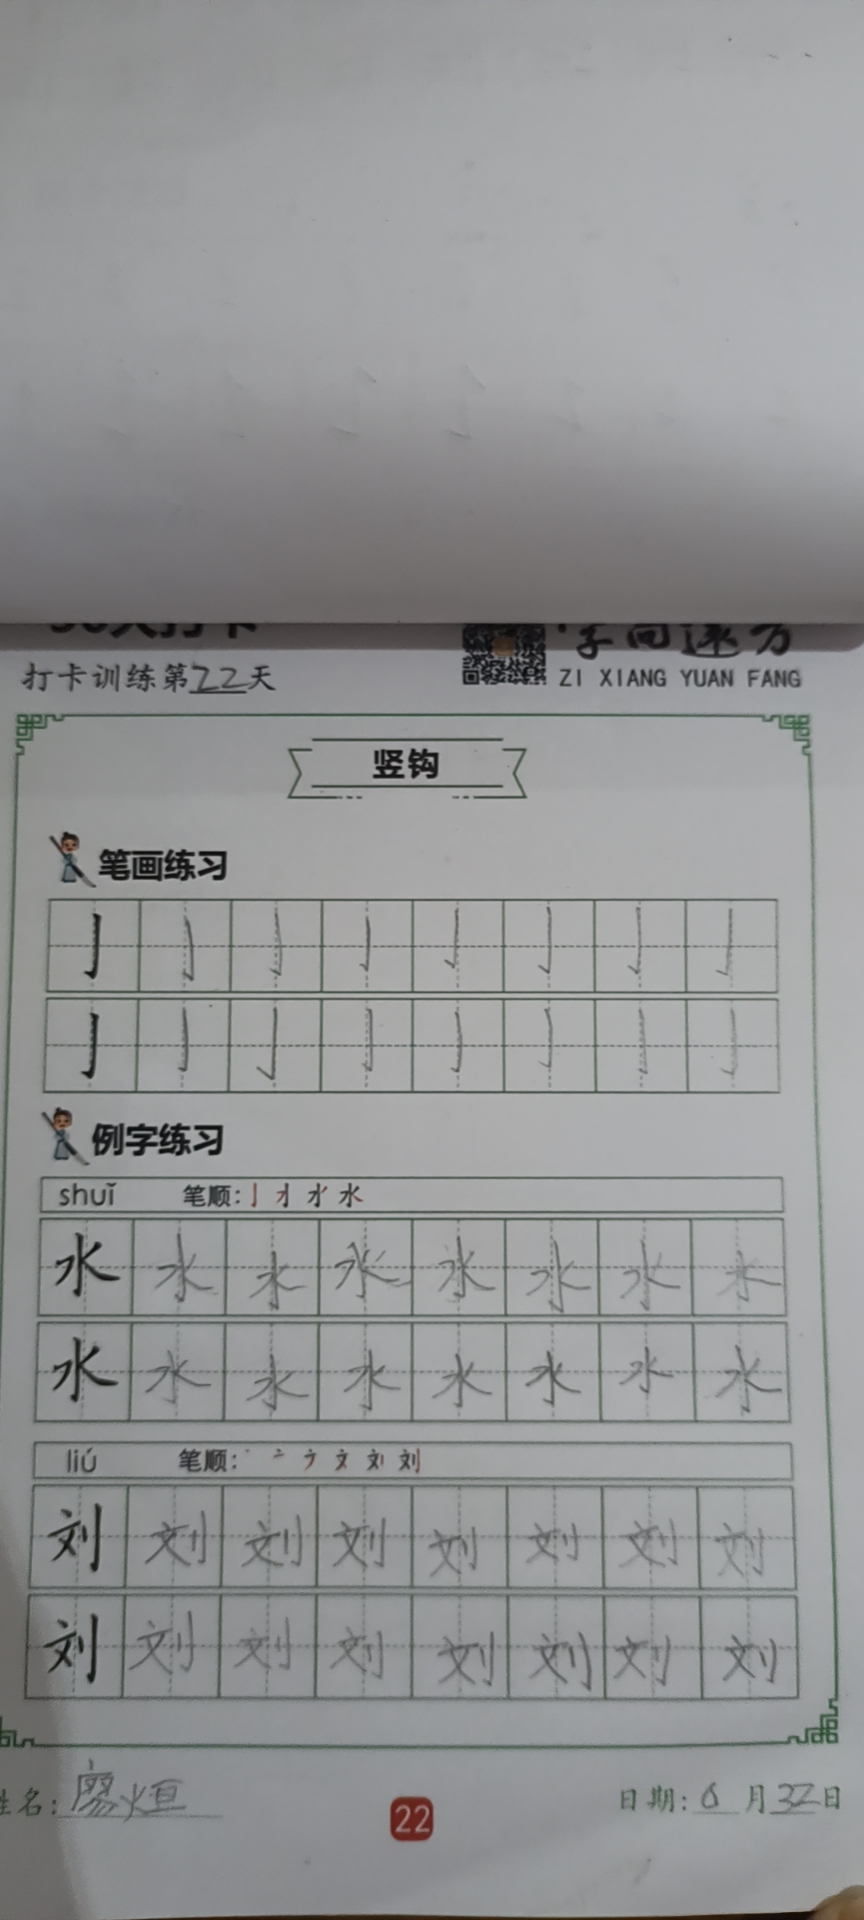 打卡训练第22天
ZI XIANG YUAN FANG
竖钩
笔画练习
亅亅亅亅亅亅亅亅
亅亅亅亅亅亅亅亅
例字练习
shuǐ 笔顺:
水水水水水水水水
水水水水水水水水
liú 笔顺:
刘刘刘刘刘刘刘刘
刘刘刘刘刘刘刘刘
姓名:廖烜
22
日期:6月32日